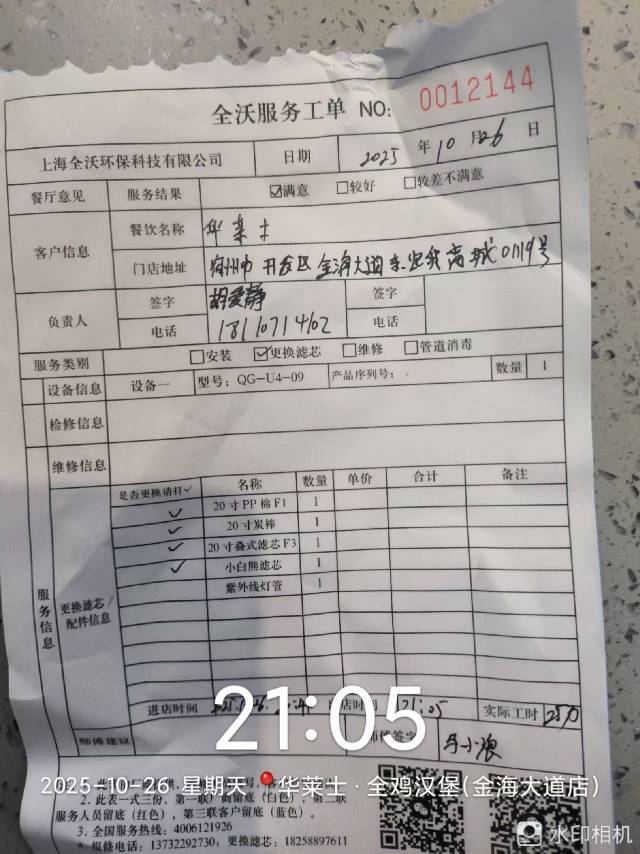 全沃服务工单 NO: 0012144
上海全沃环保科技有限公司 日期 2025 年 10 月 26 日
餐厅意见 服务结果 ☑满意 □较好 □较差不满意
客户信息 餐饮名称 华莱士
门店地址 宿州市 开发区 金海大道 商城0119号
负责人 签字 胡爱静 签字
电话 18110714102 电话
服务类别 □安装 ☑更换滤芯 □维修 □管道消毒
设备信息 设备一 型号: QG-U4-09 产品序列号: 数量 1
检修信息
维修信息
服务信息
更换滤芯/配件信息
是否更换请打✓ 名称 数量 单价 合计 备注
✓ 20寸PP棉F1 1
✓ 20寸炭棒 1
✓ 20寸叠式滤芯F3 1
✓ 小白熊滤芯 1
紫外线灯管 1
进店时间 店时间 21:05 实际工时
师傅建议 师傅签字
21:05
2025-10-26 星期天 华莱士·全鸡汉堡(金海大道店)
2. 此表一式三份, 第一联 商留底(白色), 第二联
服务人员留底(红色), 第三联客户留底(蓝色)。
3. 全国服务热线: 4006121926
维修电话: 13732292730; 更换滤芯: 18258897611
水印相机